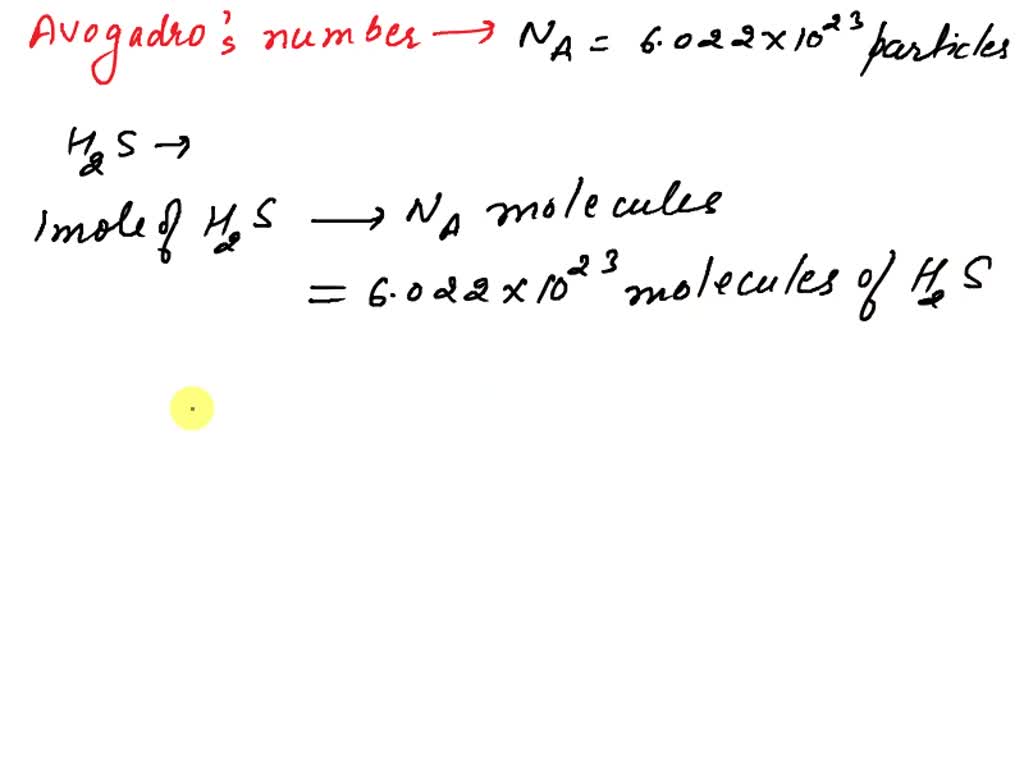 Avogadro's number → N_A = 6.022×10²³ particles
H₂S →
1mole of H₂S → N_A molecules
= 6.022×10²³ molecules of H₂S